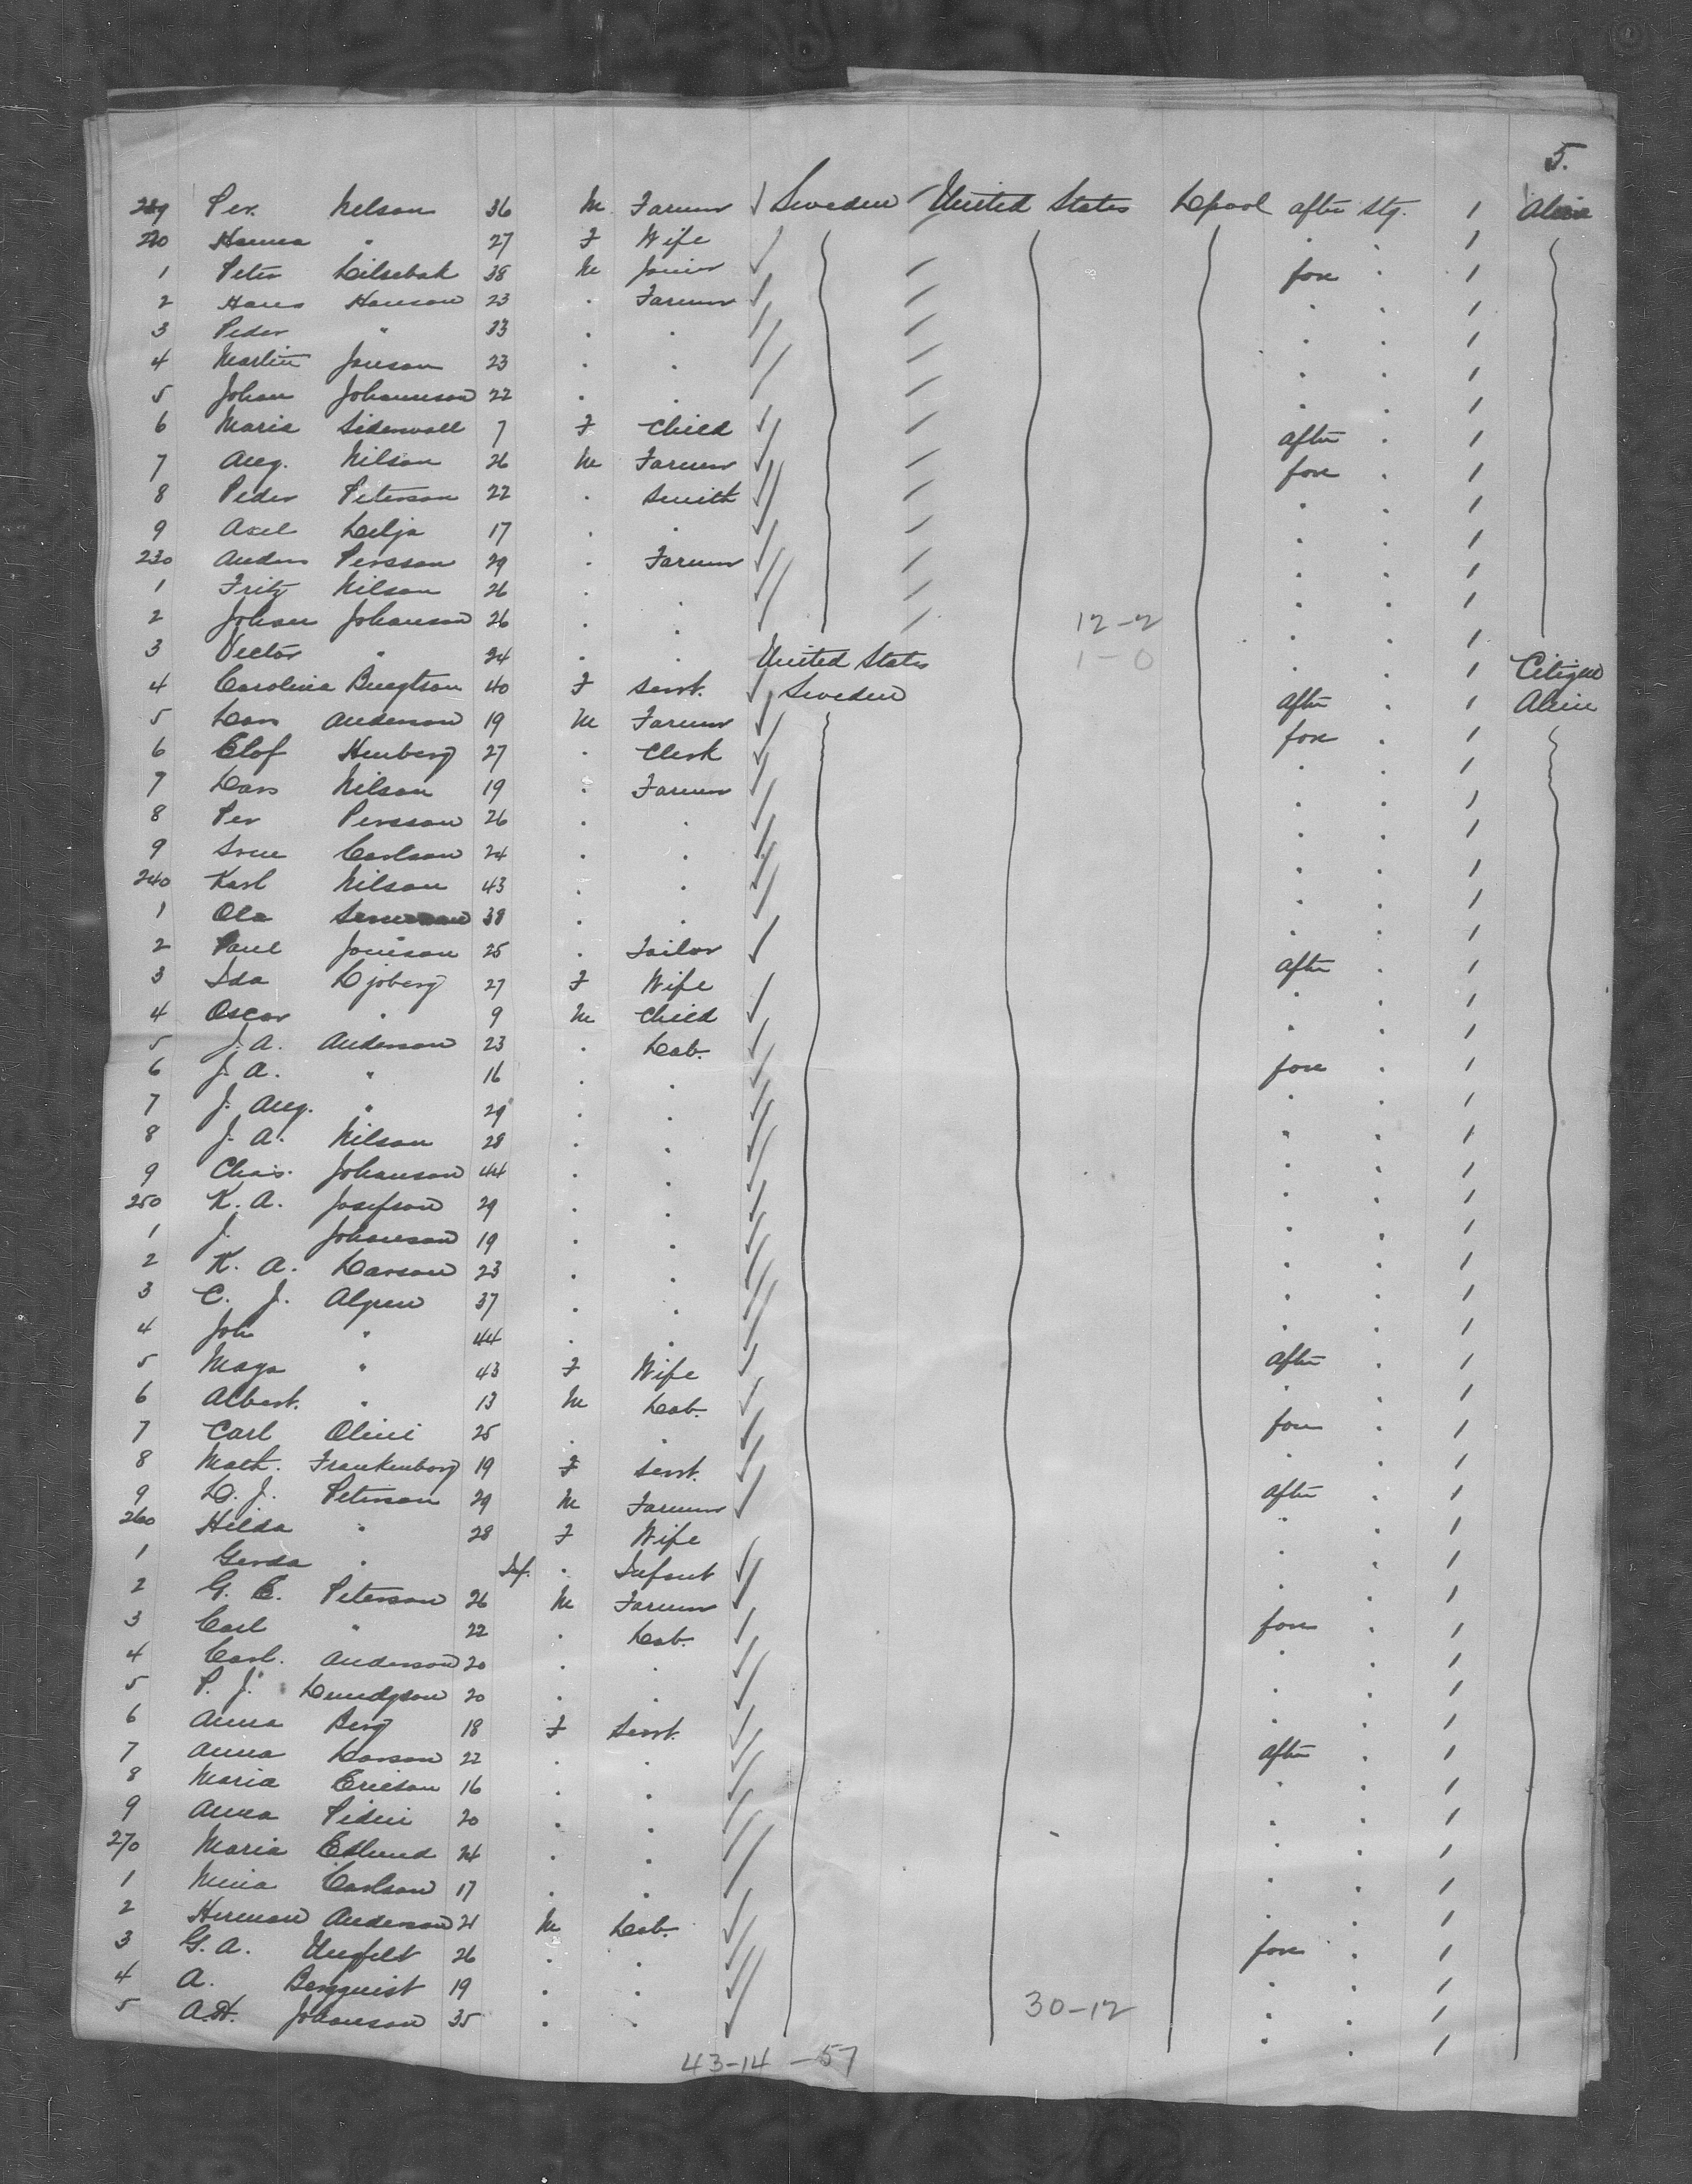 5.
219 Per. Nelson 36 M Farmer Sweden United States Lpool after Stg. 1 Alien
220 Hanna " 27 F Wife . . 1
1 Peter 38 M Joiner fore . 1
2 Hans Hanson 23 . Farmer . . 1
3 Peder " 33 . . . . 1
4 Martin Jonson 23 . . . . 1
5 Johan Johannson 22 . . . . 1
6 Maria Sidenvall 7 F Child after . 1
7 Aug. Nilson 26 M Farmer fore . 1
8 Peder Peterson 22 . Smith . . 1
9 Axel Lilja 17 . . . . 1
230 Anders Persson 29 . Farmer . . 1
1 Fritz Nilson 26 . . . . 1
2 Johan Johanson 26 . . 12-2 . . 1
3 Victor " 24 . . United States 1-0 . . 1 Citizen
4 Carolina Buegtson 40 F Servt. Sweden after . 1 Alien
5 Lars Anderson 19 M Farmer fore . 1
6 Elof 27 . Clerk . . 1
7 Lars Nilson 19 . Farmer . . 1
8 Per Persson 26 . . . . 1
9 Sven Carlson 24 . . . . 1
240 Karl Nilson 43 . . . . 1
1 Ola 38 . . . . 1
2 Paul Jonison 25 . Tailor . . 1
3 Ida Ljoberg 27 F Wife after . 1
4 Oscar " 9 M Child . . 1
5 J. A. Anderson 23 . Lab. . . 1
6 J. A. " 16 . . fore . 1
7 J. Aug. " 29 . . . . 1
8 J. A. Nilson 28 . . . . 1
9 Chas. Johanson 44 . . . . 1
250 K. A. Josefson 29 . . . . 1
1 J. Johanson 19 . . . . 1
2 K. A. Larson 23 . . . . 1
3 C. J. Algren 37 . . . . 1
4 Joh " 44 . . . . 1
5 Maya " 43 F Wife after . 1
6 Albert. " 13 M Lab. . . 1
7 Carl Olini 25 . . fore . 1
8 Math. Frankenborg 19 F Servt. . . 1
9 L. J. Peterson 29 M Farmer after . 1
260 Hilda " 28 F Wife . . 1
1 Gerda " Inf. . Infant . . 1
2 G. E. Peterson 26 M Farmer . . 1
3 Carl " 22 . Lab. fore . 1
4 Carl. Anderson 20 . . . . 1
5 P. J. Lundgson 20 . . . . 1
6 Anna Berg 18 F Servt. . . 1
7 Anna Larson 22 . . after . 1
8 Maria Ericson 16 . . . . 1
9 Anna 20 . . . . 1
270 Maria Edlund 24 . . . . 1
1 Mina Carlson 17 . . . . 1
2 Herman Anderson 21 M Lab. . . 1
3 G. A. Ungfelt 26 . . fore . 1
4 A. Bergquist 19 . . . . 1
5 A.H. Johanson 35 . . 30-12 . . 1
43-14-57